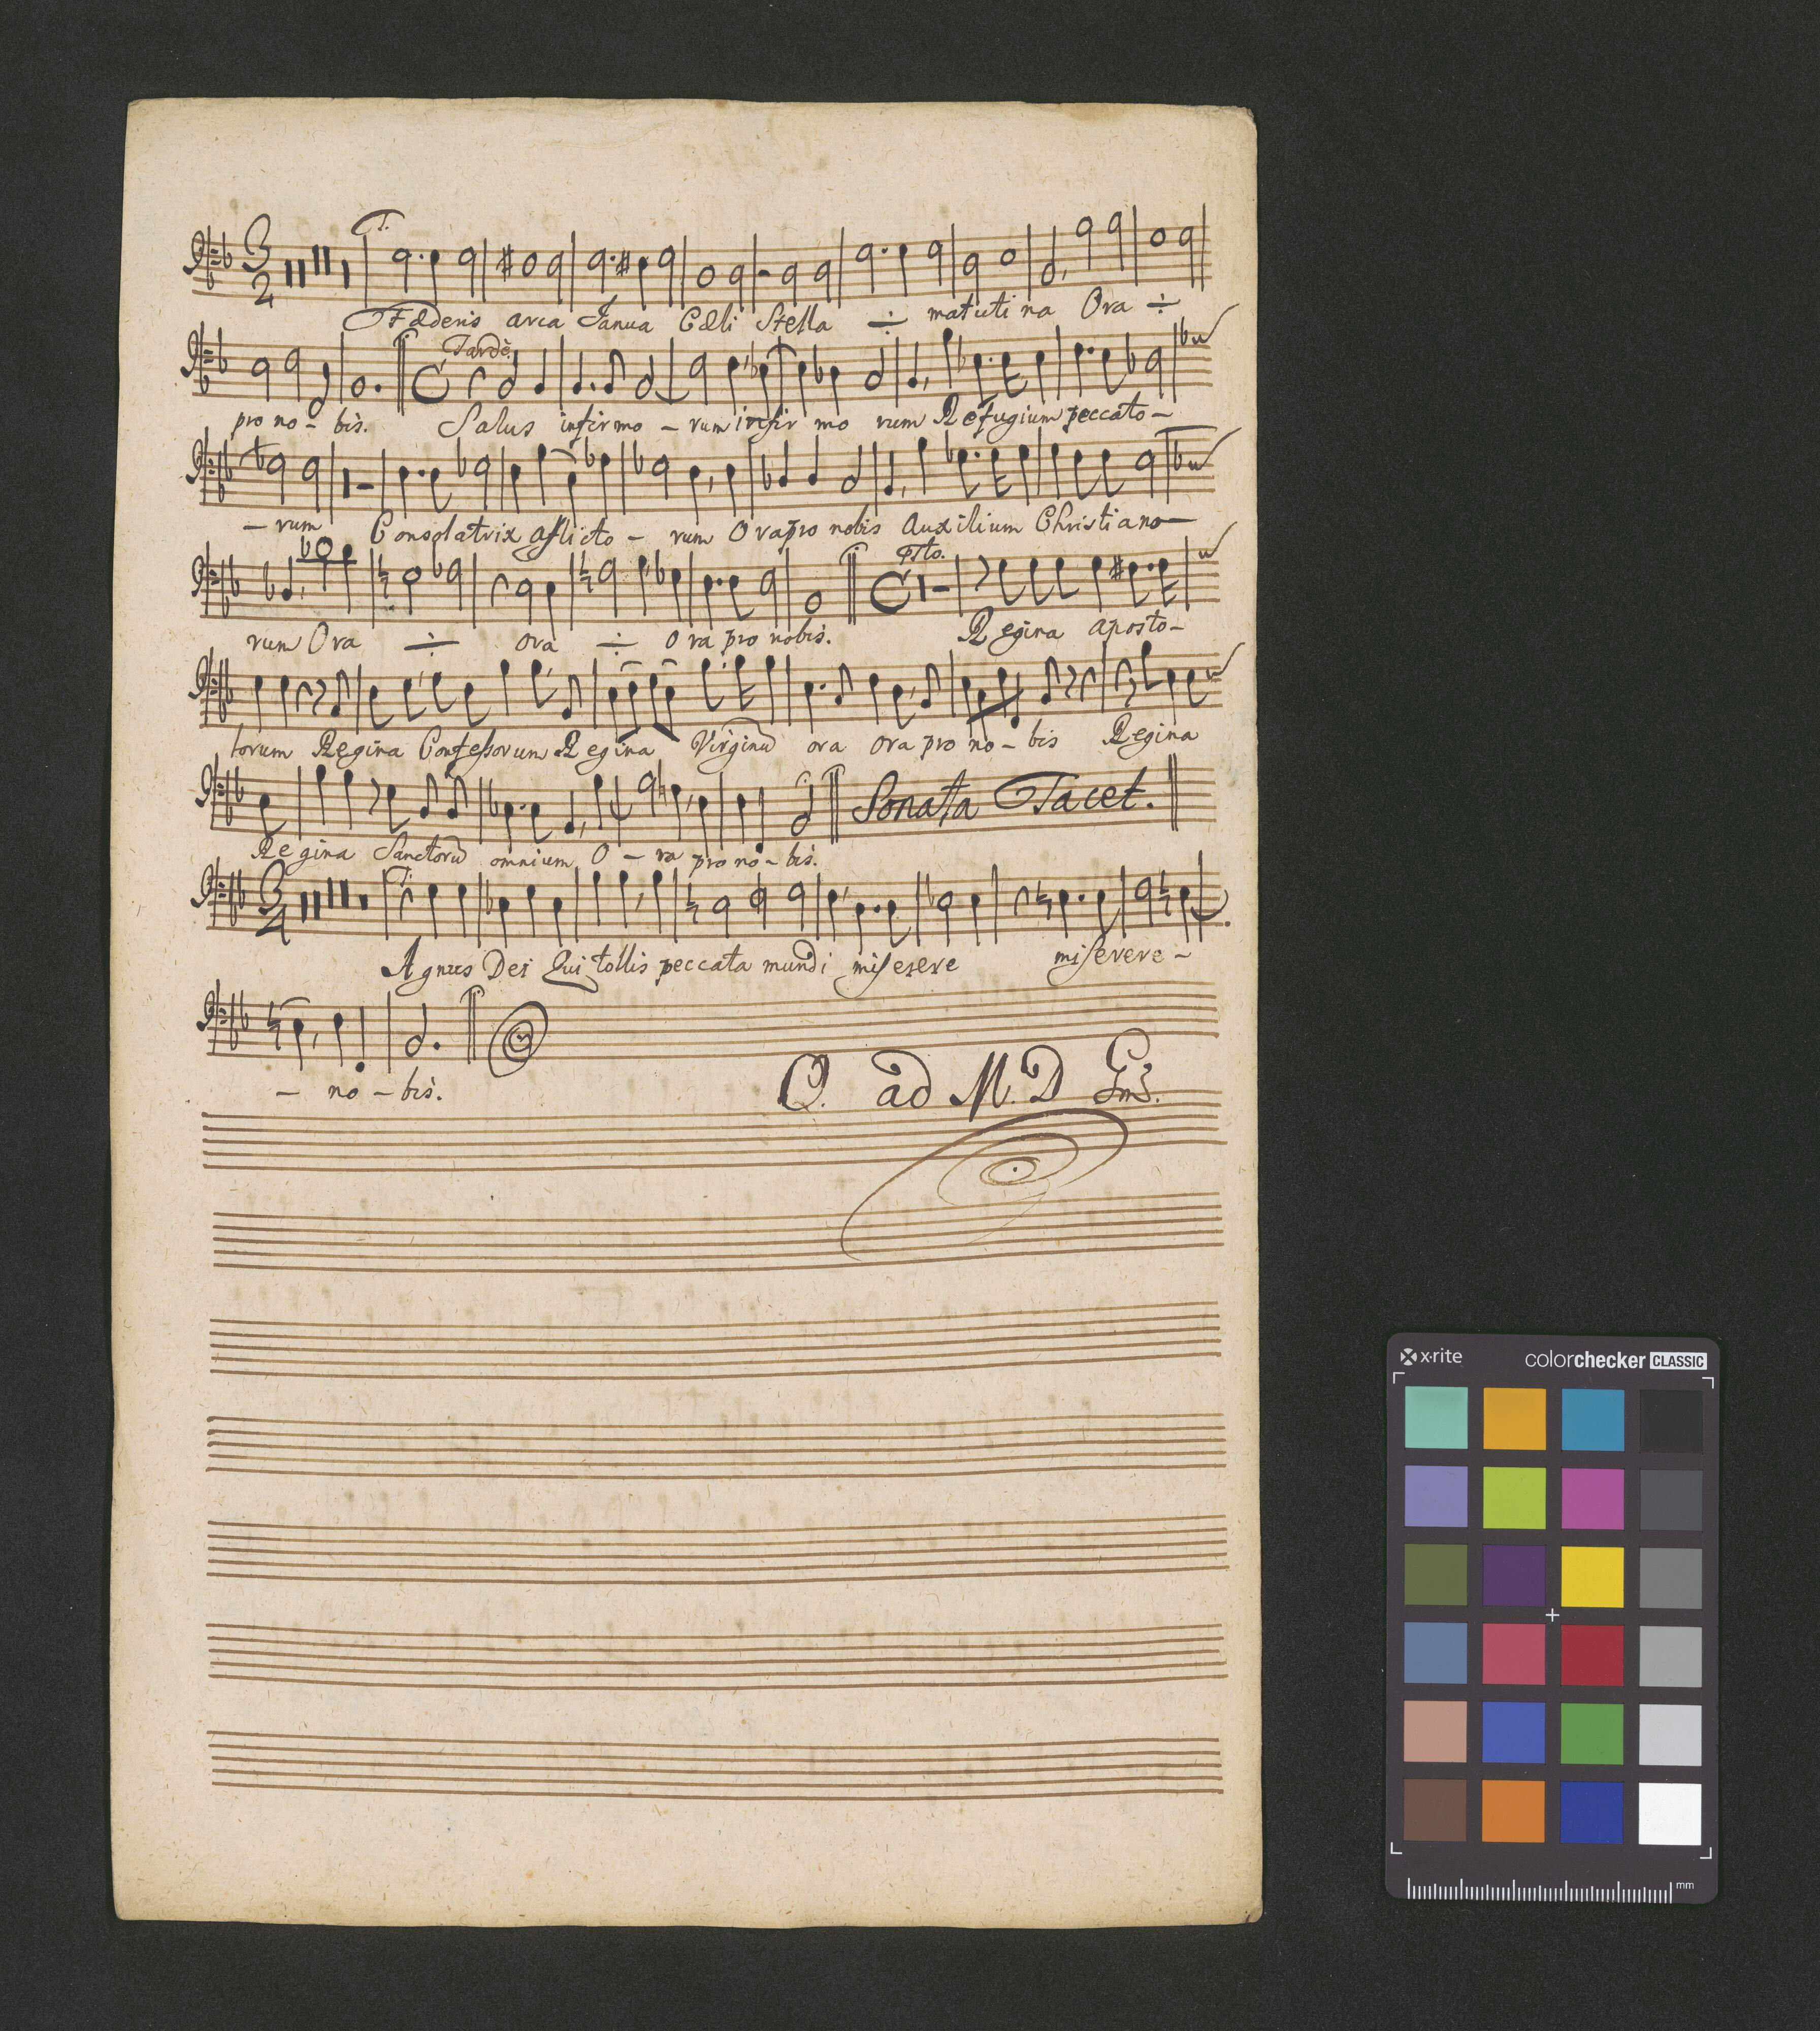 T.
3 2
Fœderis arca Janua Cœli Stella ÷ matuti na Ora ÷
Tardè
pro no - bis. Salus infirmo - rum infir mo rum Refugium peccato -
- rum Consolatrix afflicto - rum Ora pro nobis Auxilium Christiano -
Psto.
rum Ora ÷ ora ÷ Ora pro nobis. Regina aposto -
lorum Regina Confessorum Regina Virginū ora ora pro no - bis Regina
Sonata Tacet.
Regina Sanctorū omnium O - ra pro no - bis.
T.
3 4
Agnus Dei Qui tollis peccata mundi miserere miserere -
- no - bis.
O. ad M. D G
x·rite colorchecker CLASSIC
mm